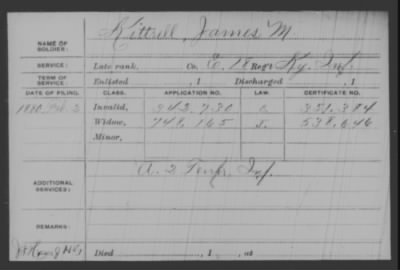 Kittrell, James M.
NAME OF SOLDIER:
SERVICE: Late rank, Co. E, 18 Reg't Ky. Inf.
TERM OF SERVICE Enlisted , 1 Discharged , 1
DATE OF FILING. CLASS. APPLICATION NO. LAW. CERTIFICATE NO.
1880, Feb. 2 Invalid, 343,730 351,384
Widow, 748,165 538,646
Minor,
ADDITIONAL SERVICES: A. 2 Tenn. Inf.
REMARKS:
Died , 1 , at